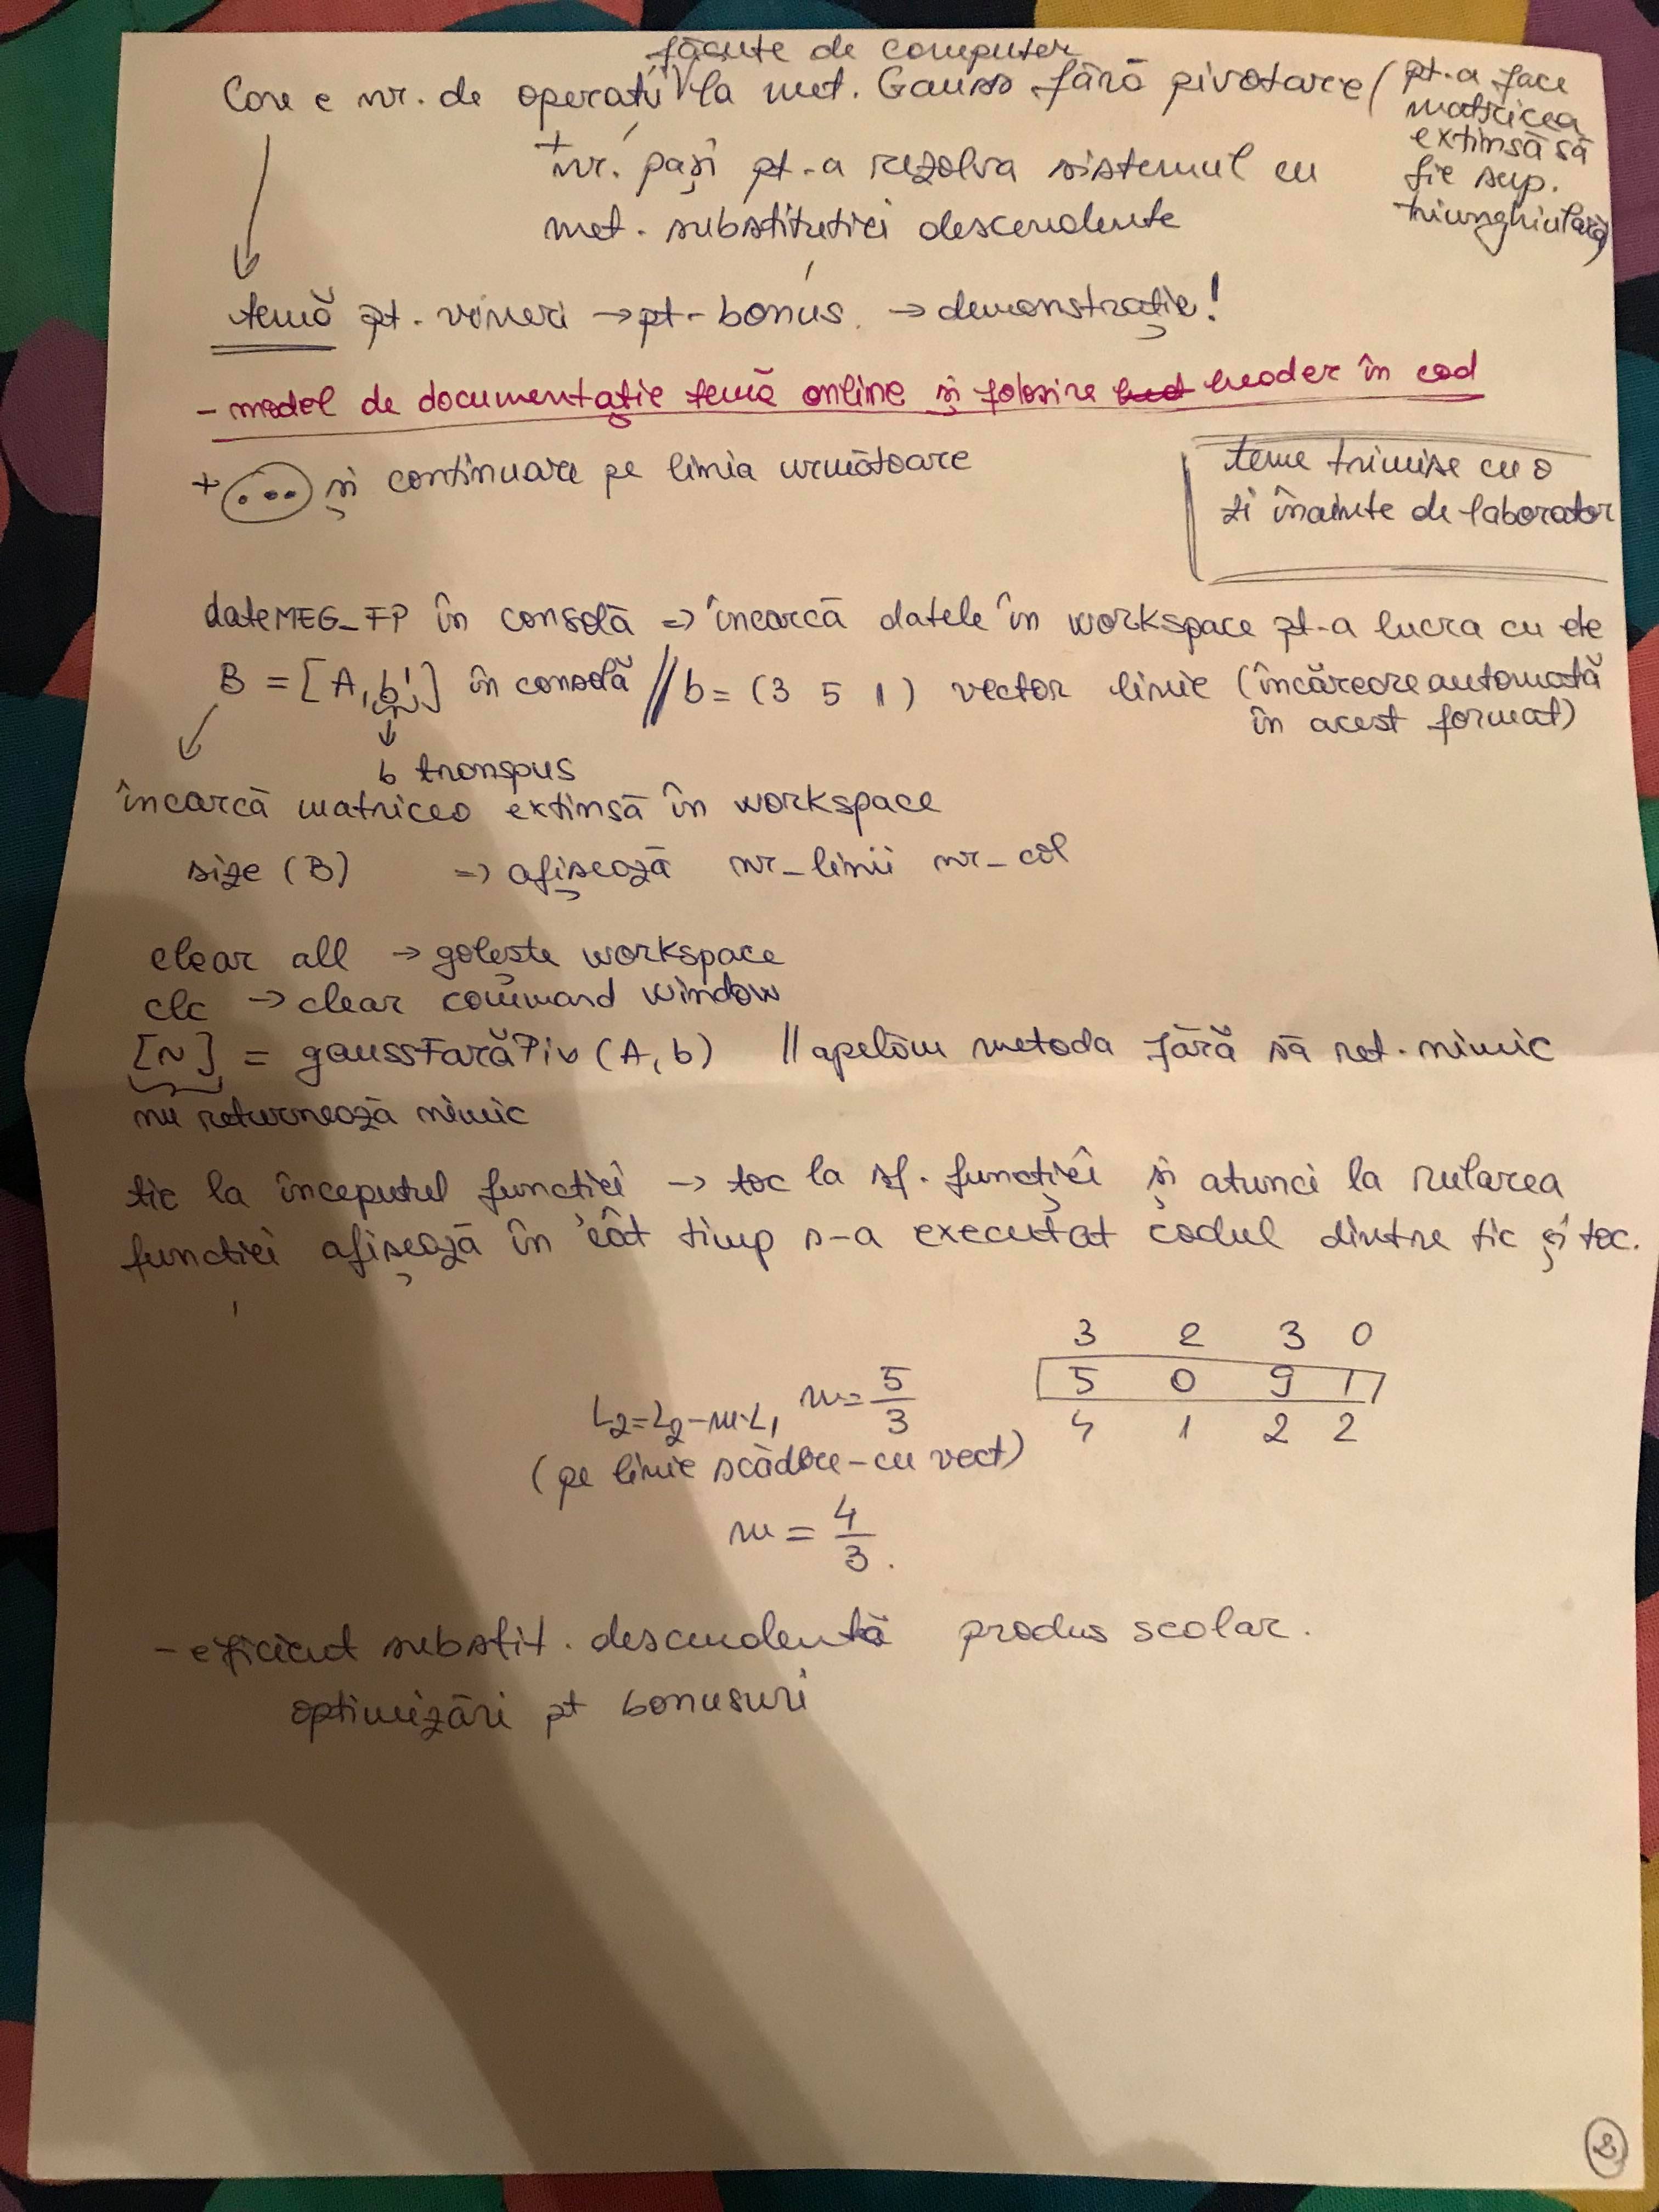 făcute de computer
Care e nr. de operații la met. Gauss fără pivotare (pt. a face
matricea
extinsă să
fie sup.
triunghiulară)
+ nr. pași pt. a rezolva sistemul cu
met. substituției descendente
temă pt. vineri → pt. bonus → demonstrație!
- model de documentație temă online și folosire header în cod
+ ... și continuare pe linia următoare
teme trimise cu o
zi înainte de laborator
dateMEG_FP în consolă => încarcă datele în workspace pt-a lucra cu ele
B = [A, b'] în consolă // b = (3 5 1) vector linie (încărcare automată
în acest format)
b transpus
încarcă matricea extinsă în workspace
size (B) => afișează nr_linii nr_col
clear all → golește workspace
clc → clear command window
[~] = gaussFarăPiv (A, b) // apelăm metoda fără să ret. nimic
nu returnează nimic
tic la începutul funcției → toc la sf. funcției și atunci la rularea
funcției afișează în cât timp s-a executat codul dintre tic și toc.
3 2 3 0
L2=L2-m·L1 m=5/3 5 0 9 1
4 1 2 2
(pe linie scădere - cu vect)
m = 4/3.
- eficient substit. descendentă produs scalar.
optimizări pt bonusuri
8